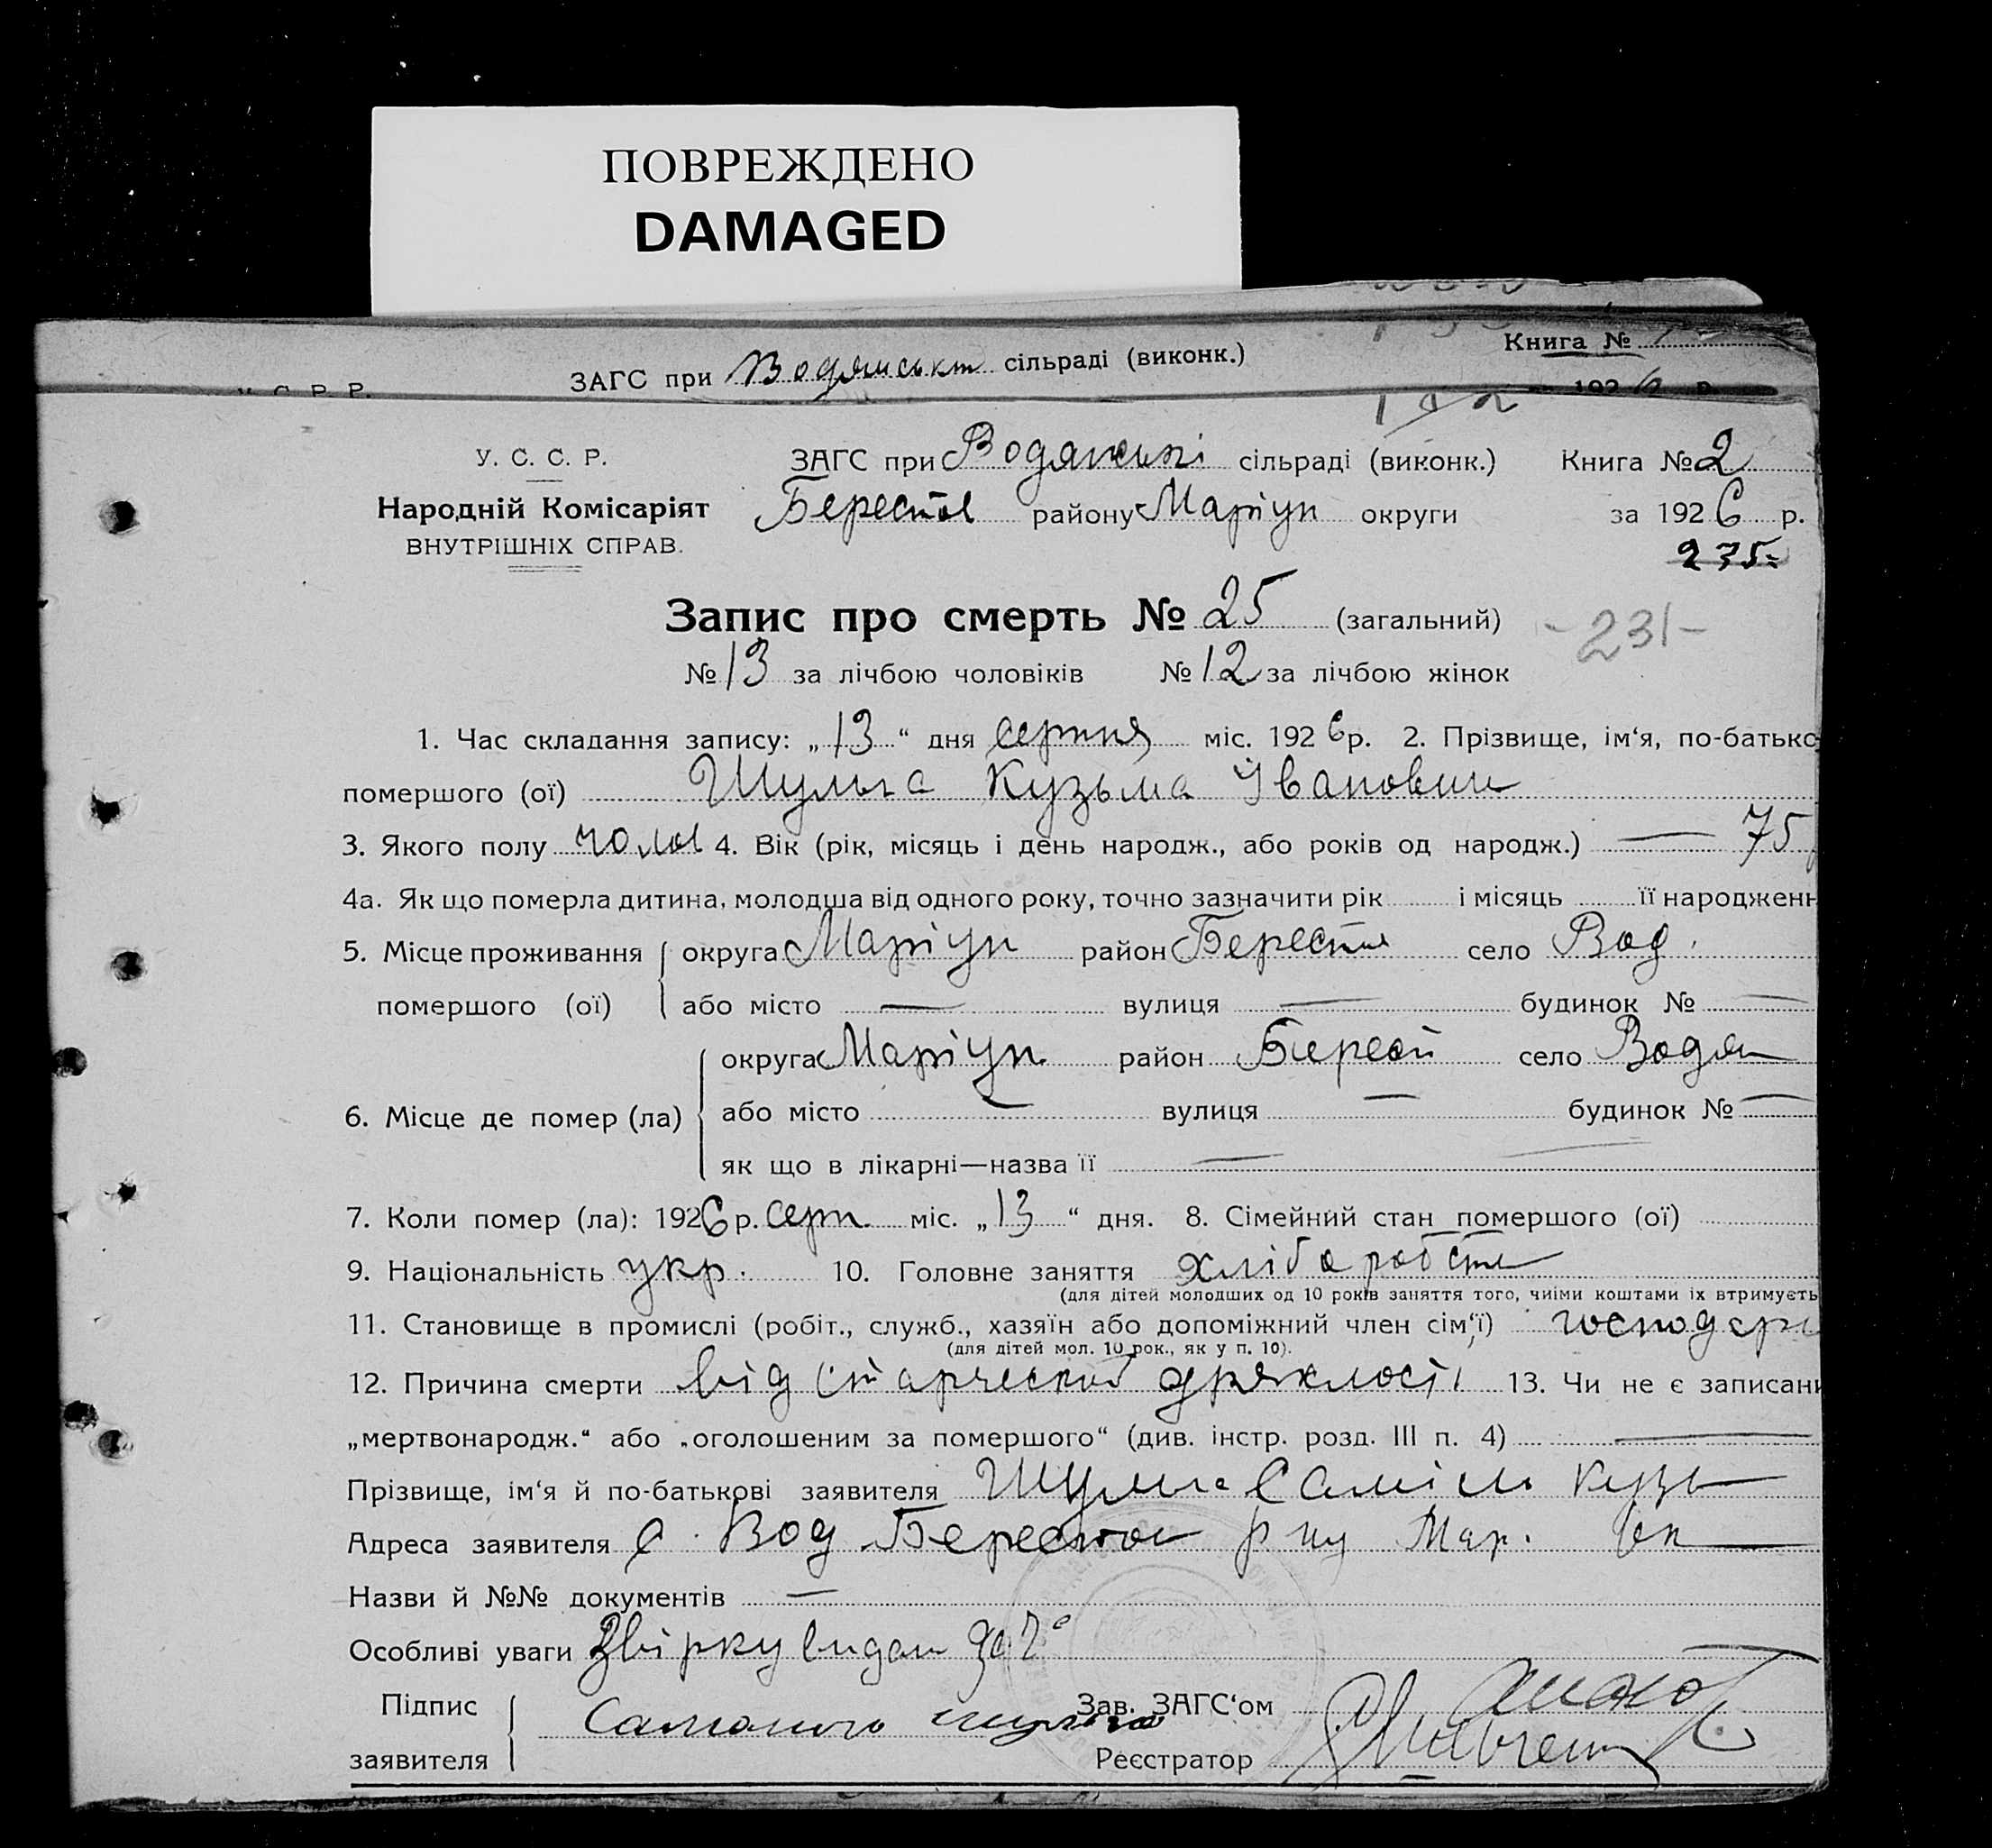 ПОВРЕЖДЕНО
DAMAGED
ЗАГС при Водянськ сільраді (виконк.) Книга №
У. С. Р. Р. 1926 р.
У. С. С. Р. ЗАГС при Водянські сільраді (виконк.) Книга № 2
Народній Комісаріят Берестов району Маріуп округи за 1926 р.
ВНУТРІШНІХ СПРАВ.
275
Запис про смерть № 25 (загальний)
-231-
№ 13 за лічбою чоловіків № 12 за лічбою жінок
1. Час складання запису: „13“ дня серпня міс. 1926 р. 2. Прізвище, ім‘я, по-батько
помершого (ої) Шульга Кузьма Іванович
3. Якого полу чолов 4. Вік (рік, місяць і день народж., або років од народж.) — 75
4а. Як що померла дитина, молодша від одного року, точно зазначити рік і місяць її народженн
5. Місце проживання округа Маріуп район Берестов село Вод.
помершого (ої) або місто — вулиця — будинок № —
округа Маріуп район Берест село Водян
6. Місце де помер (ла) або місто — вулиця — будинок № —
як що в лікарні—назва її —
7. Коли помер (ла): 1926 р. серп. міс. „13“ дня. 8. Сімейний стан помершого (ої)
9. Національність укр. 10. Головне заняття хліборобств
(для дітей молодших од 10 років заняття того, чиїми коштами їх втримуєть
11. Становище в промислі (робіт., служб., хазяїн або допоміжний член сім‘ї) господар
(для дітей мол. 10 рок., як у п. 10).
12. Причина смерти від старческой дряхлості 13. Чи не є записани
„мертвонародж.“ або „оголошеним за помершого“ (див. інстр. розд. III п. 4) —
Прізвище, ім‘я й по-батькові заявителя Шульга Кузь
Адреса заявителя с. Вод Берестов р ну Мар. ок
Назви й №№ документів —
Особливі уваги видан
Підпис Зав. ЗАГС‘ом
заявителя Реєстратор